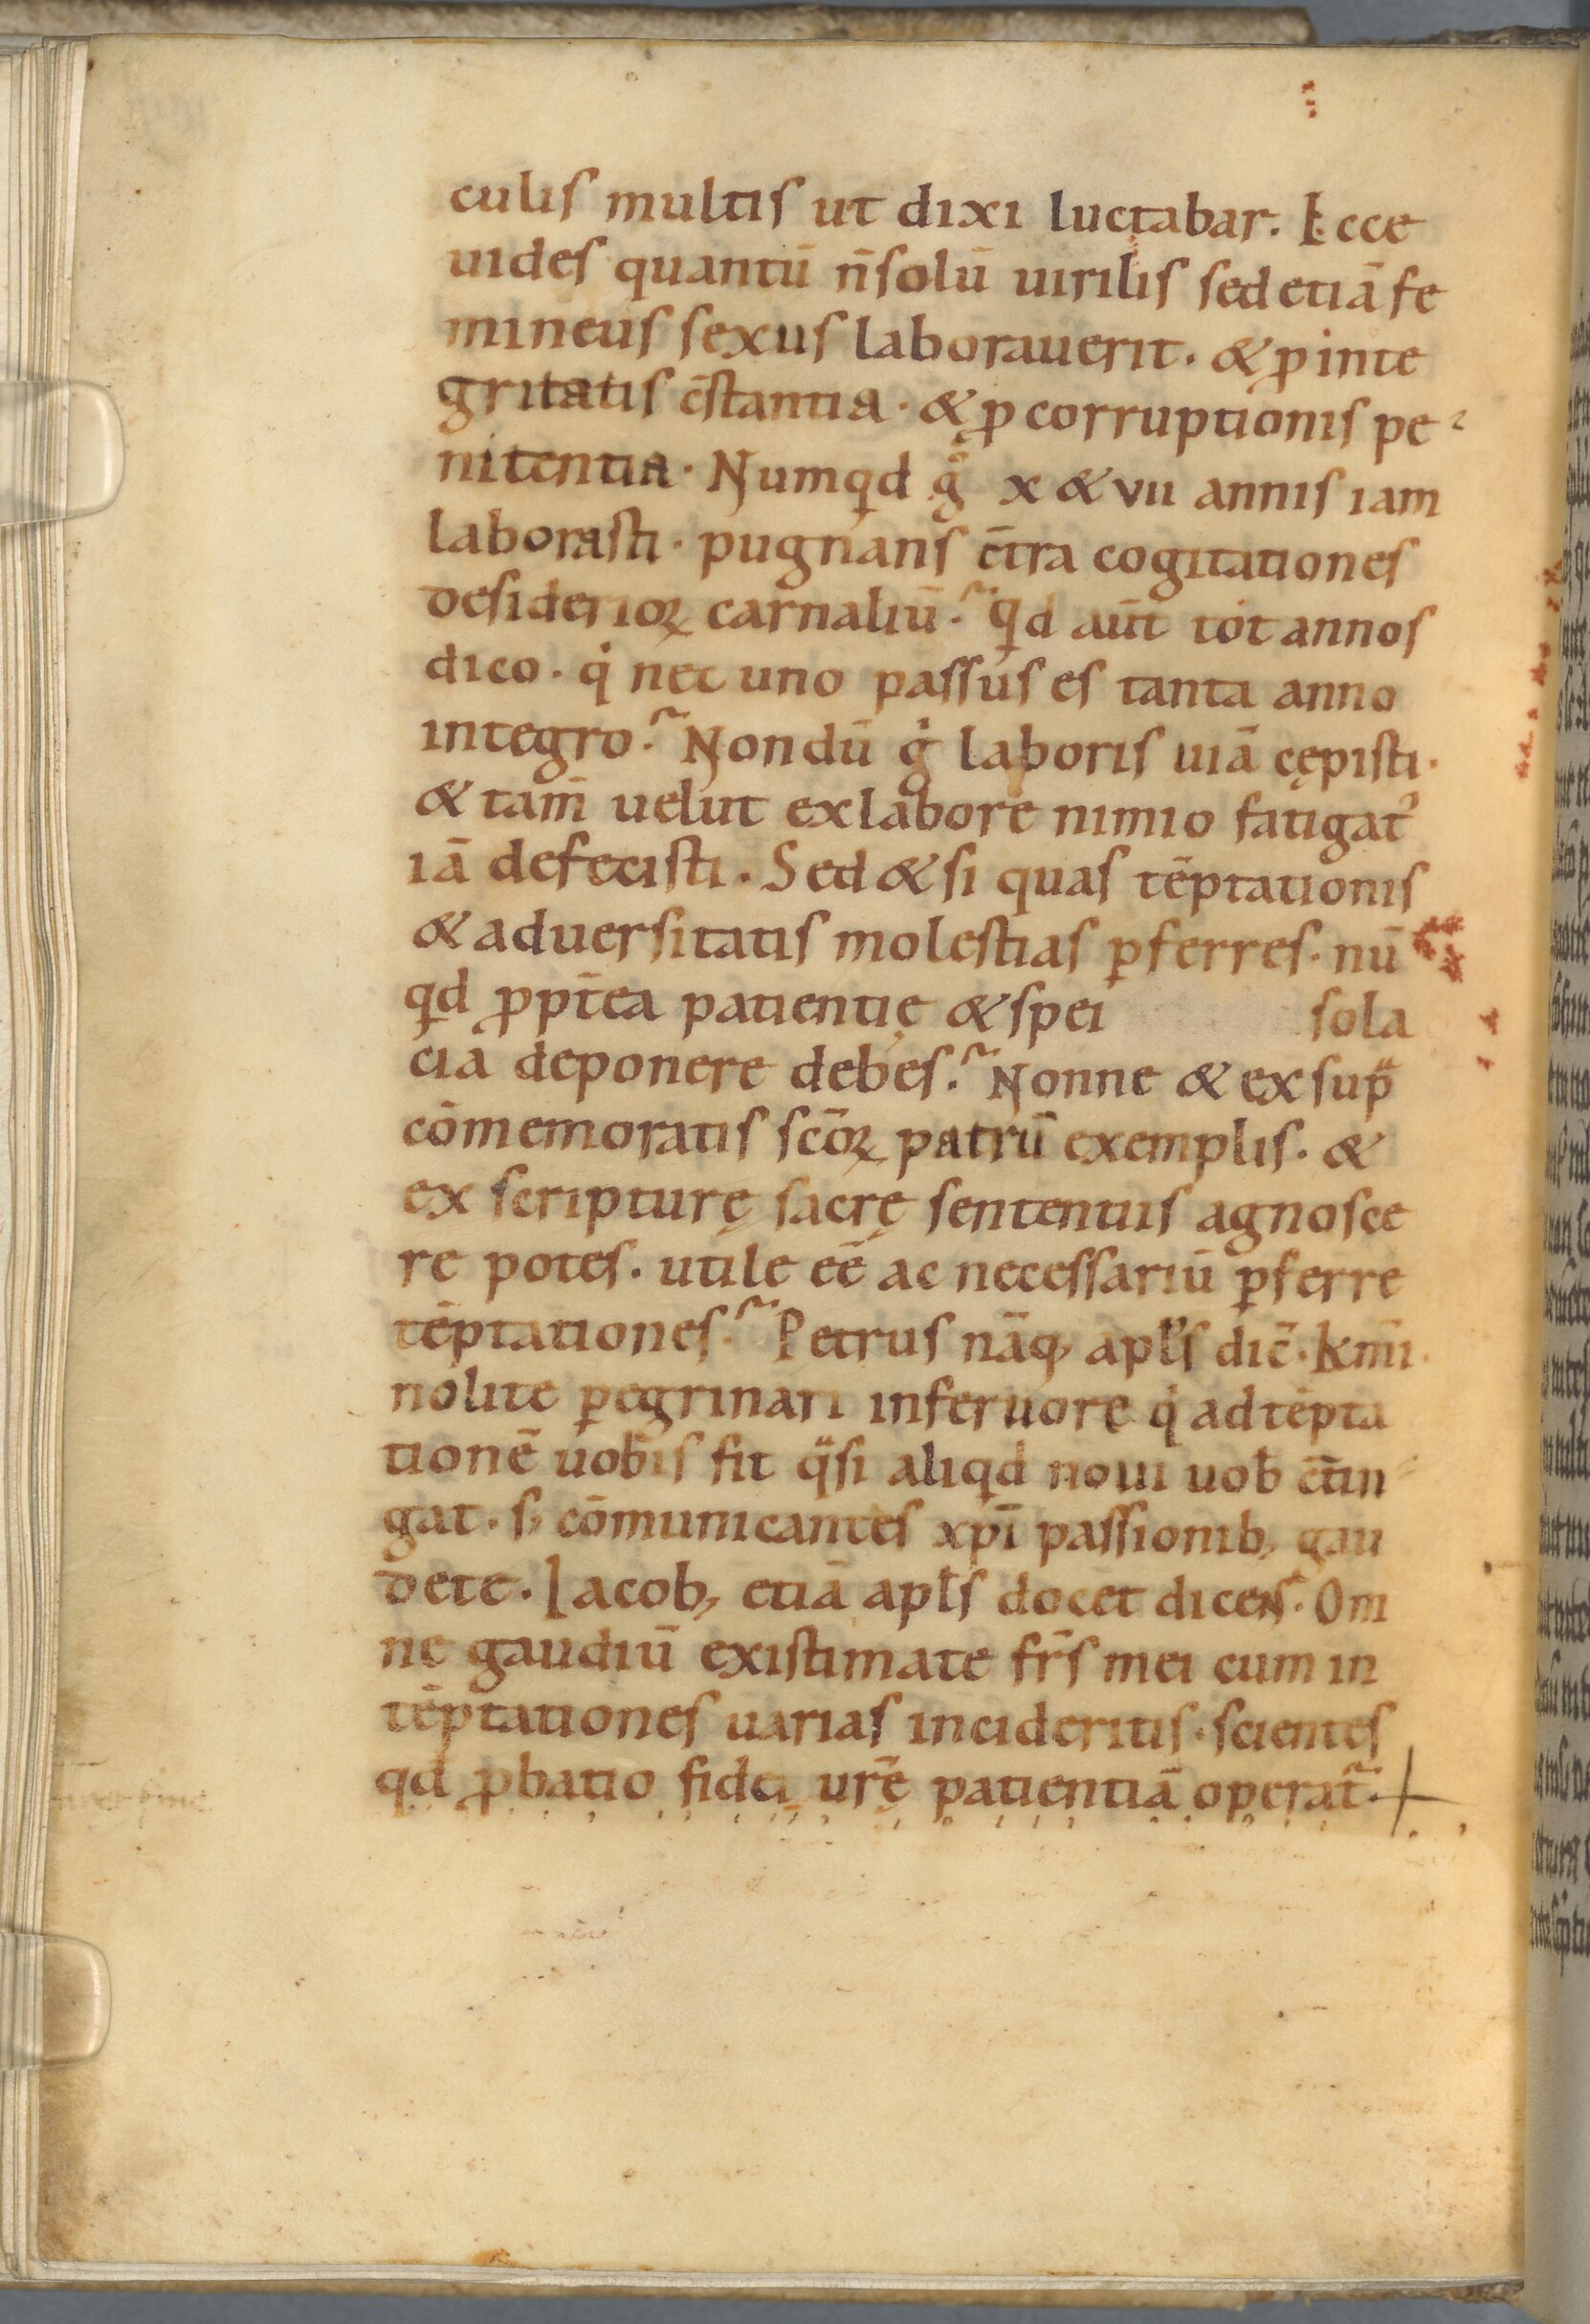 culis multis ut dixi luctabar. Ecce
uides quantū n̄ solū uirilis sed etiā fe
mineus sexus laborauerit. & ꝓ inte
gritatis c̄stantia. & ꝓ corruptionis pe
nitentia. Numqd gͦ x & vii annis iam
laborasti. pugnans c̄tra cogitationes
desiderioꝝ carnaliū? qd aūt tot annos
dico. qi nec uno passus es tanta anno
integro? Nondū gͦ laboris uiā cępisti.
& tam̄ uelut ex labore nimio fatigatꝰ
iā defecisti. Sed & si quas tēptationis
& aduersitatis molestias ꝑferres. nū
qd ꝓpt̄ea patientię & spei sola
cia deponere debes? Nonne & ex sup̄
cōmemoratis sc̄oꝝ patrū exemplis. &
ex scripturę sacrę sententiis agnosce
re potes. utile ēē ac necessariū ꝑferre
tēptationes? Petrus nāq; apl̄s dic̄. km̄i.
nolite ꝑegrinari in feruore qi ad tēpta
tionē uobis fit qͣsi aliqd noui uob̄ c̄tin
gat. s; cōmunicantes xp̄i passionib; gau
dete. Iacob; etiā apl̄s docet dicens. Om
ne gaudiū existimate fr̄s mei cum in
tēptationes uarias incideritis. scientes
qd ꝓbatio fidei ur̄ę patientiā operat̄.